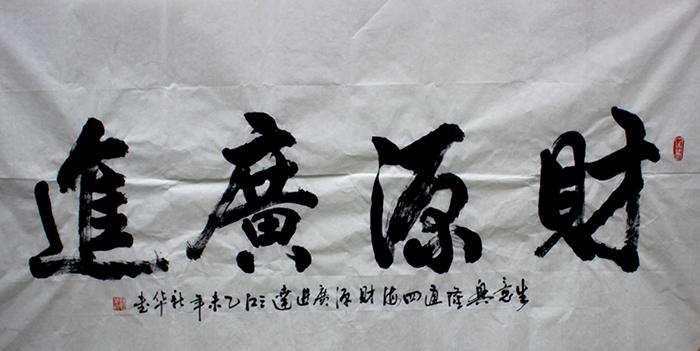 財源廣進
生意興隆通四海財源廣進達三江乙未年华書